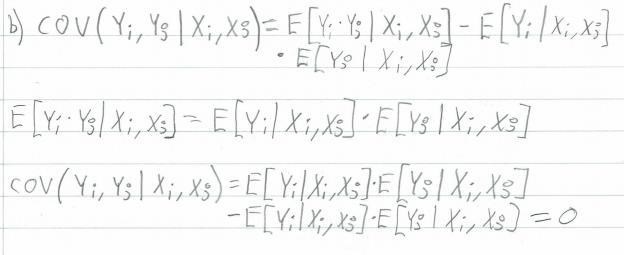 b) COV(Yi, Yj | Xi, Xj) = E[Yi · Yj | Xi, Xj] - E[Yi | Xi, Xj]
· E[Yj | Xi, Xj]
E[Yi · Yj | Xi, Xj] = E[Yi | Xi, Xj] · E[Yj | Xi, Xj]
COV(Yi, Yj | Xi, Xj) = E[Yi | Xi, Xj] · E[Yj | Xi, Xj]
- E[Yi | Xi, Xj] · E[Yj | Xi, Xj] = 0